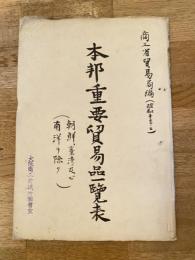 商工省貿易局編(昭和十三・三)
本邦重要貿易品一覧表
(朝鮮、臺湾及ビ
南洋ヲ除ク)